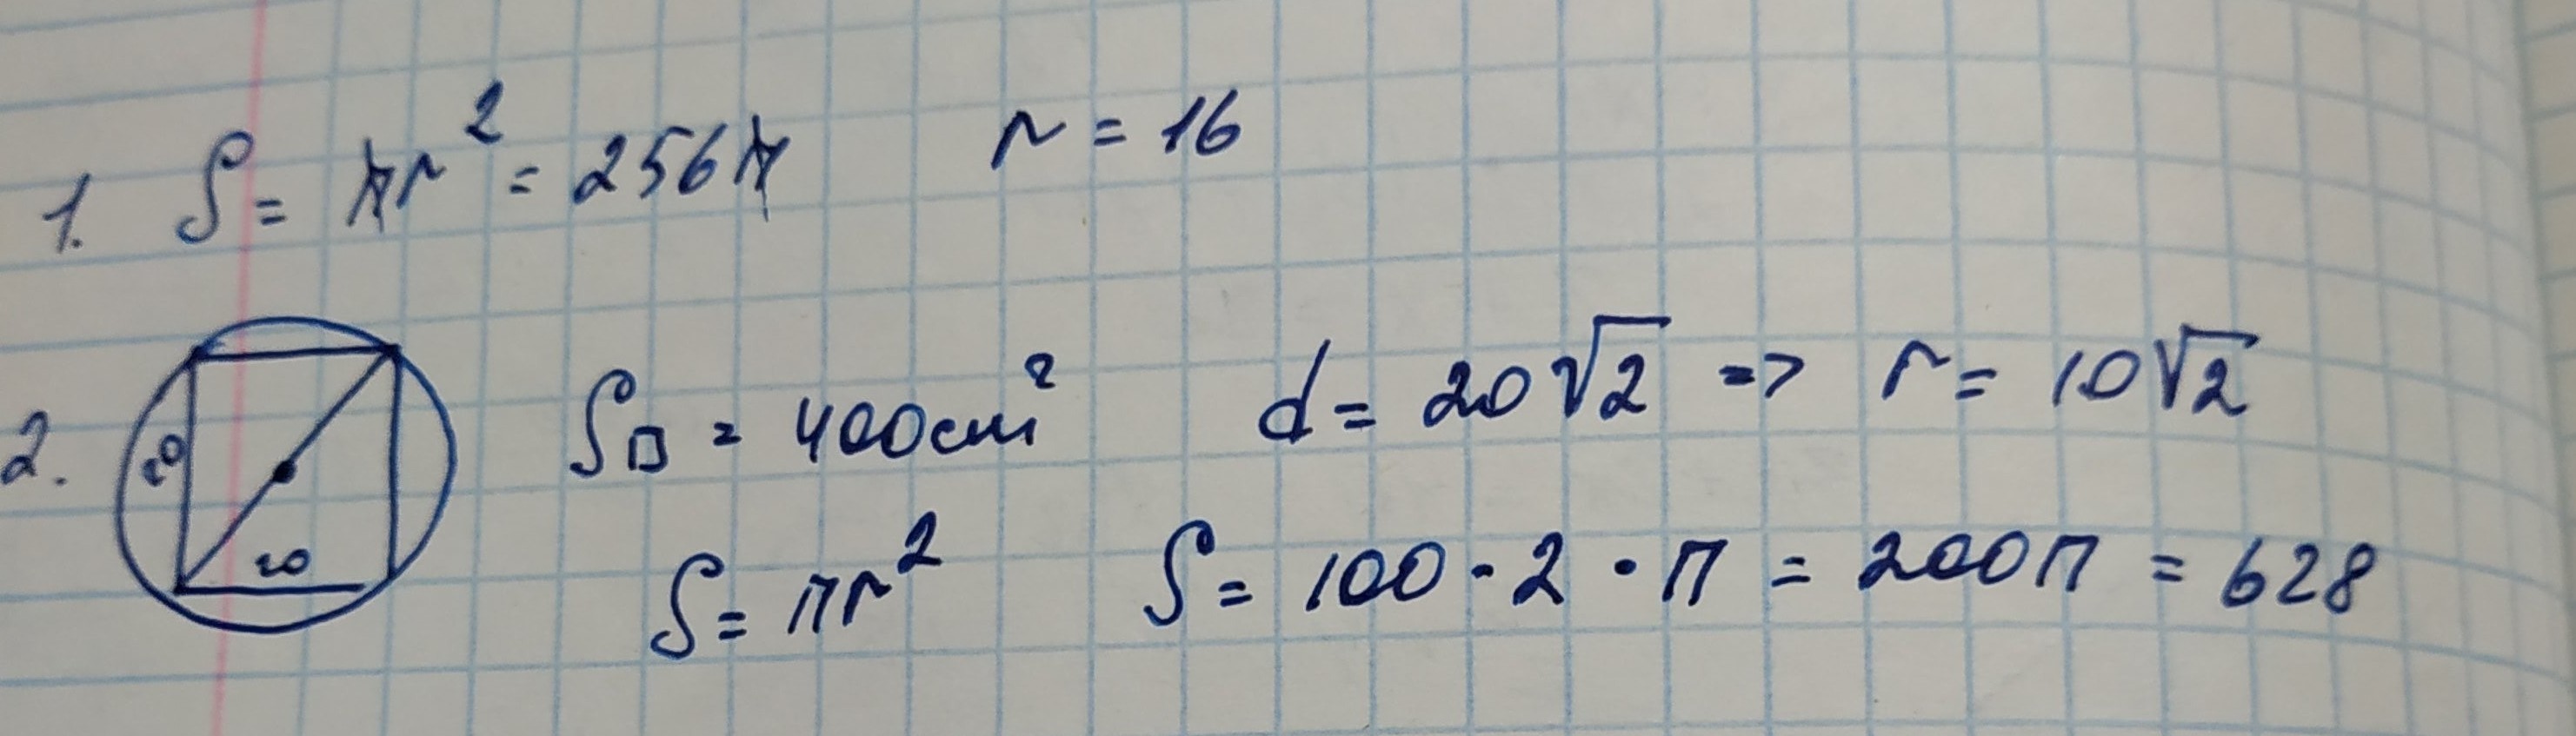 1. S = πr² = 256π r = 16
2. 20 20 S□ = 400cm² d = 20√2 => r = 10√2
S = πr² S = 100 · 2 · π = 200π = 628